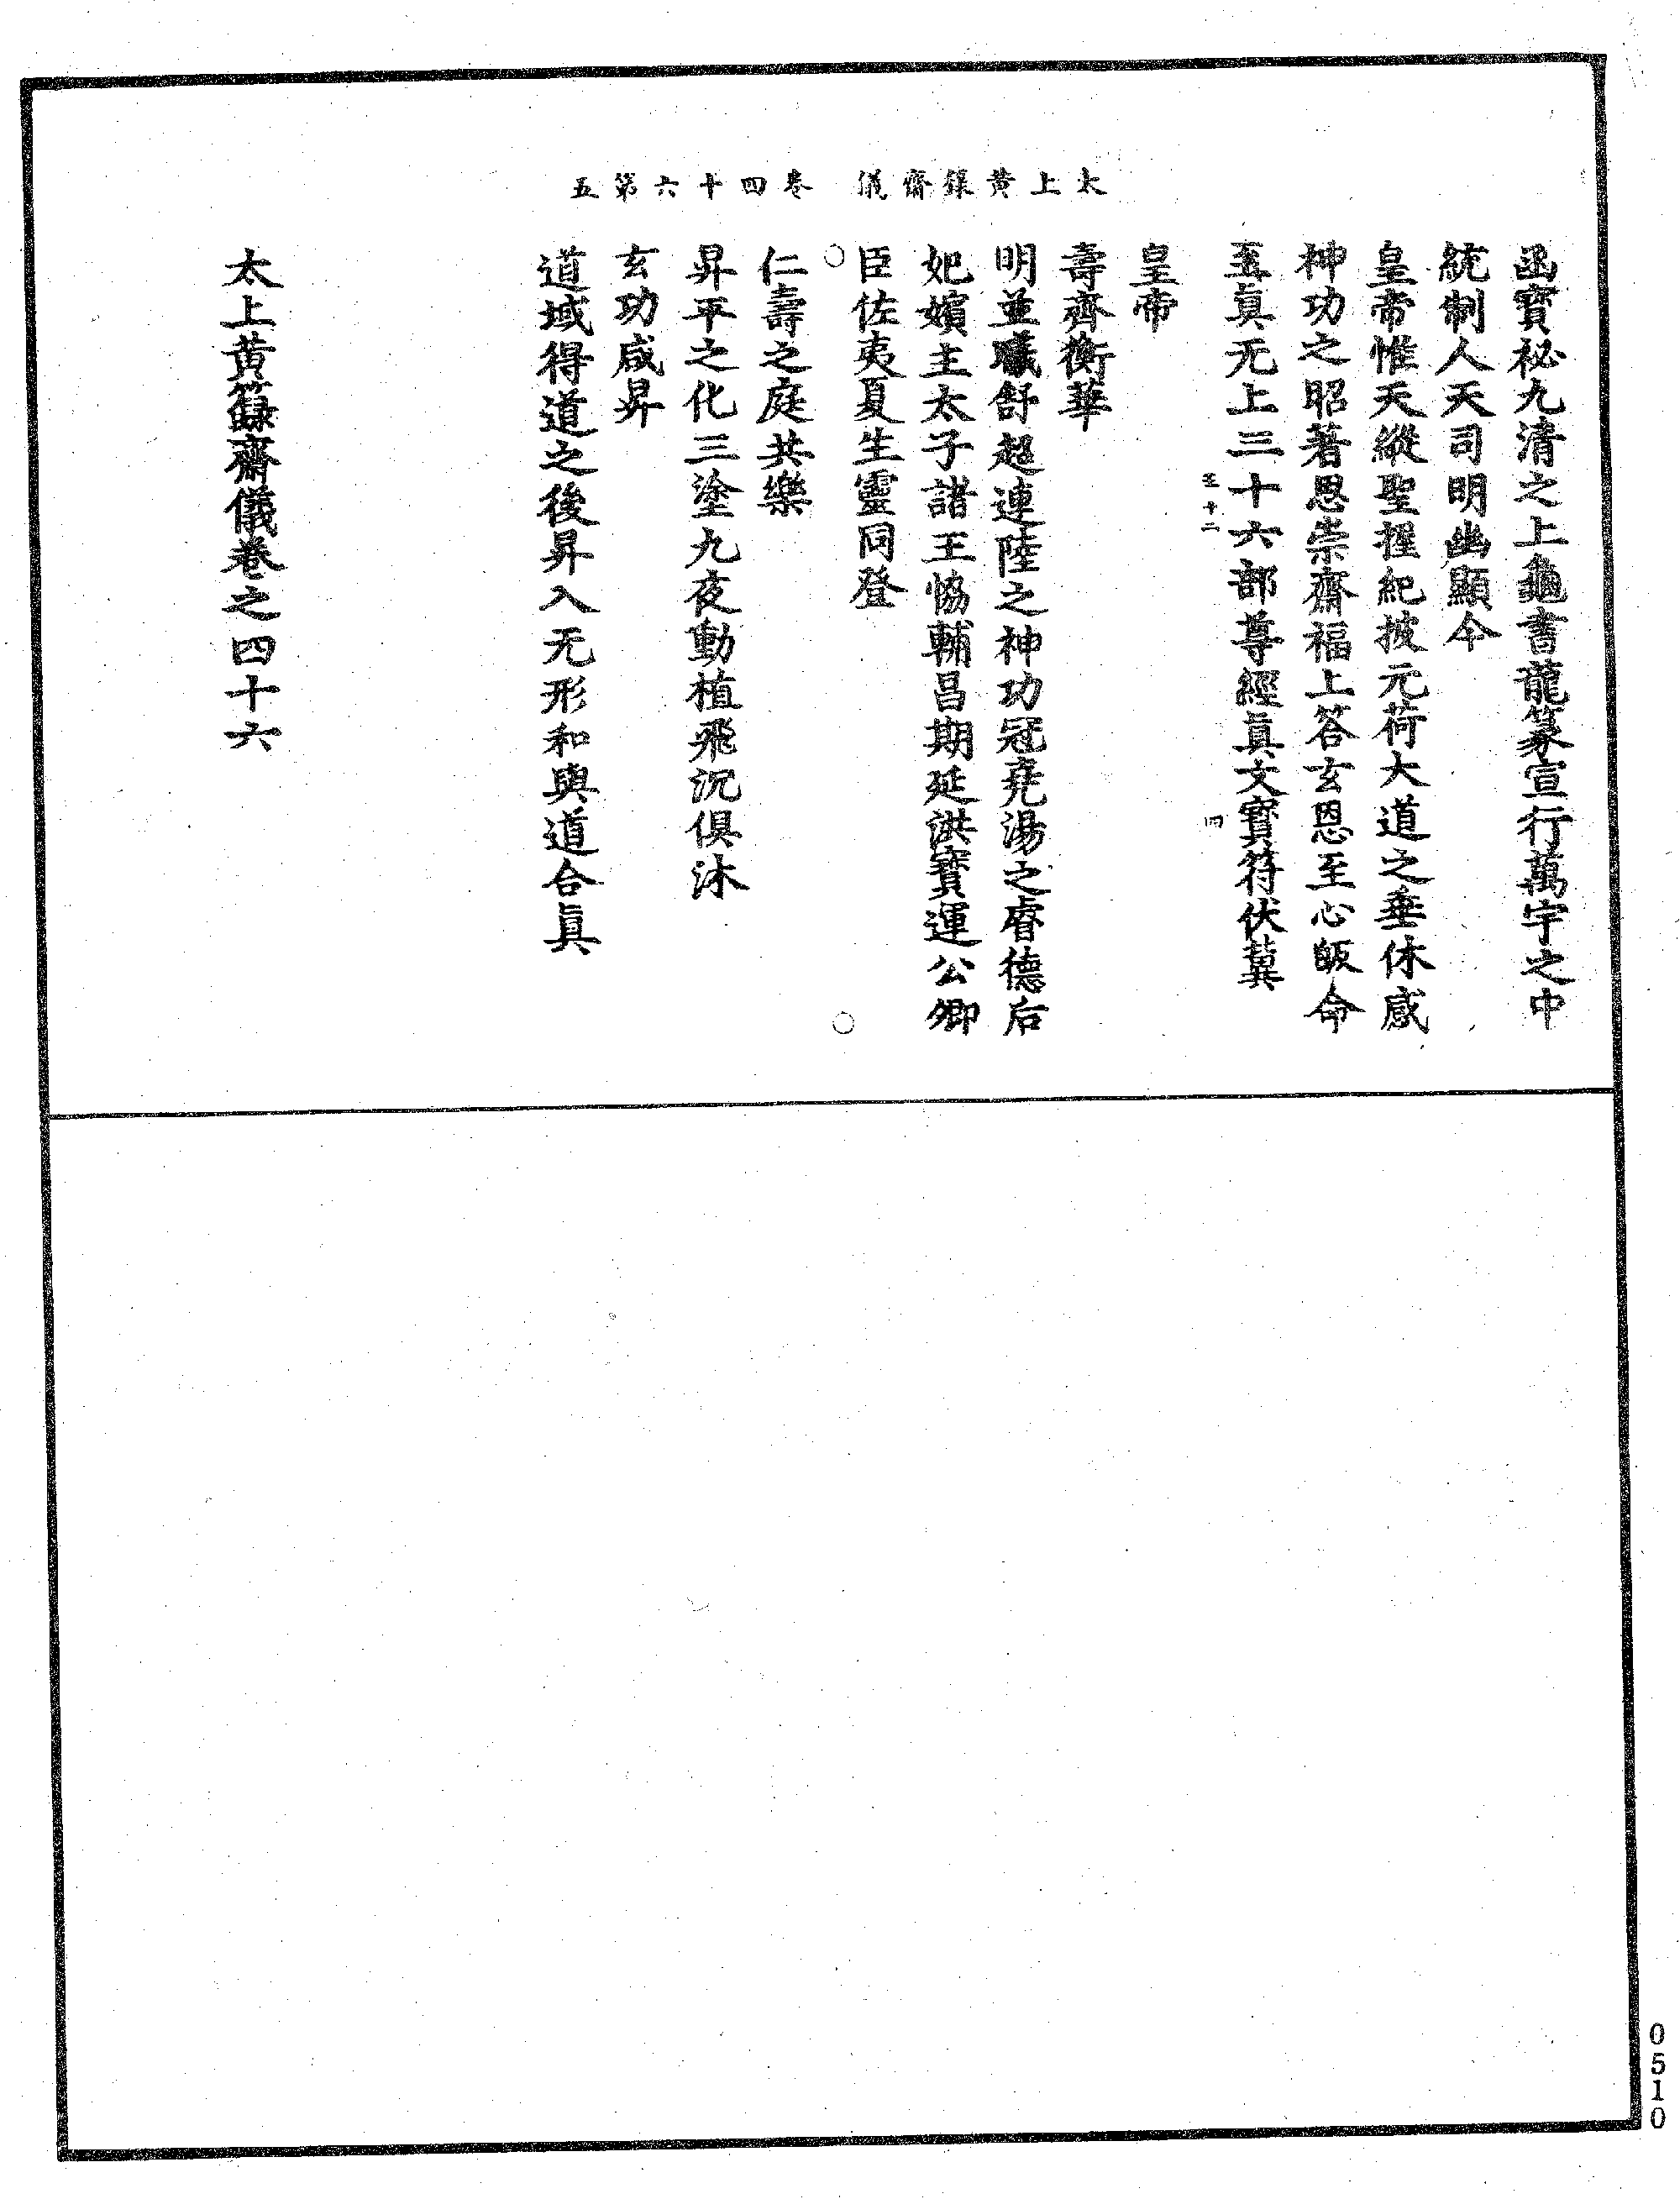 太上黃籙齋儀　卷四十六第五
函寶祕九清之上龜書龍篆宣行萬宇之中
統制人天司明幽顯今
皇帝惟天縱聖握紀披元荷大道之垂休感
神功之昭著思崇齋福上答玄恩至心皈命
玉眞无上三十六部尊經眞文寶符伏冀
皇帝
壽齊衡華
明並曦舒超連陸之神功冠堯湯之睿德后
妃嬪主太子諸王恊輔昌期延洪寶運公卿
臣佐夷夏生靈同登
仁壽之庭共樂
昇平之化三塗九夜動植飛沉俱沐
玄功咸昇
道域得道之後昇入无形和與道合眞
太上黃籙齋儀卷之四十六
0510